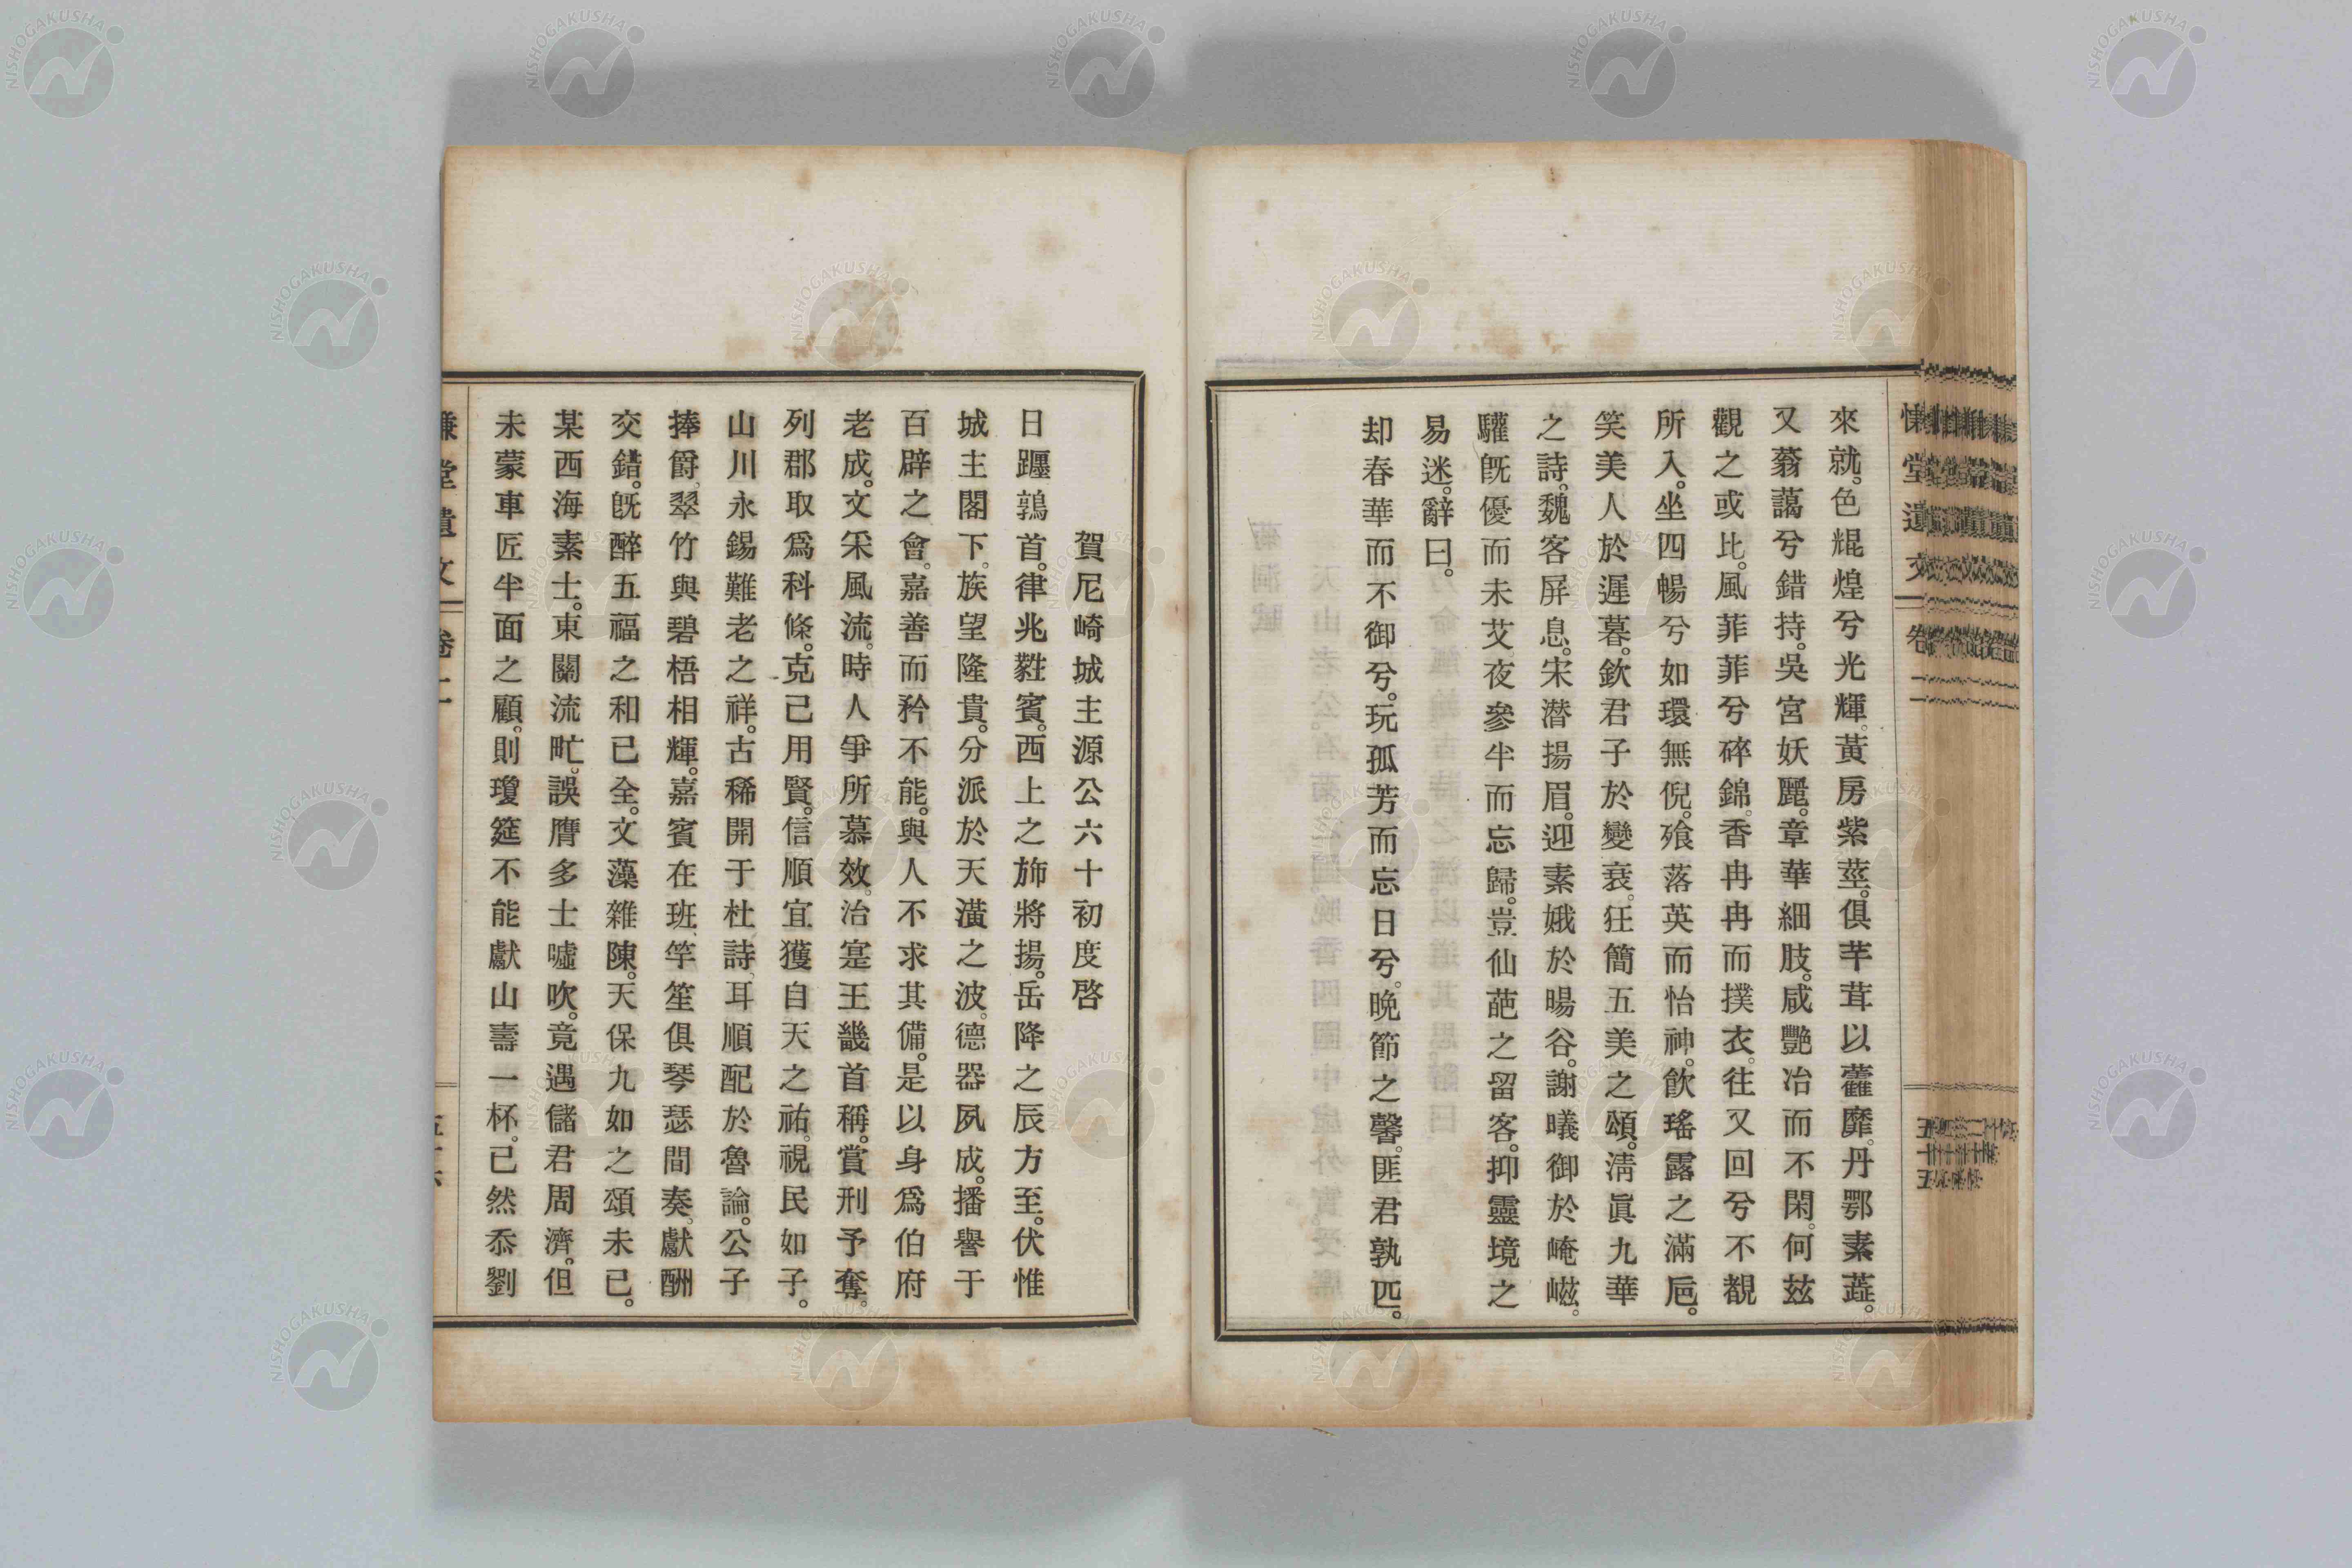 來就。色焜煌兮光輝。黃房紫莖。俱芊茸以蘿靡。丹鄂素蕋。
又蓊藹兮錯持。吳宮妖麗。章華細肢。咸艷冶而不閑。何玆
觀之或比。風菲菲兮碎錦。香冉冉而撲衣。往又回兮不覩
所入。坐四暢兮如環無倪。飱落英而怡神。飮瑤露之滿巵。
笑美人於遲暮。欽君子於變衰。狂簡五美之頌。淸眞九華
之詩。魏客屏息。宋潜揚眉。迎素娥於暘谷。謝曦御於崦嵫。
驩旣優而未艾。夜參半而忘歸。豈仙葩之留客。抑靈境之
易迷。辭曰。
却春華而不御兮。玩孤芳而忘日兮。晚節之馨。匪君孰匹。
賀尼崎城主源公六十初度啓
日躔鶉首。律兆蕤賓。西上之斾將揚。岳降之辰方至。伏惟
城主閣下。族望隆貴。分派於天潢之波。德器夙成。播譽于
百辟之會。嘉善而矜不能。與人不求其備。是以身爲伯府
老成。文采風流。時人爭所慕效。治寔王畿首稱。賞刑予奪。
列郡取爲科條。克己用賢。信順宜獲自天之祐。視民如子。
山川永錫難老之祥。古稀開于杜詩、耳順配於魯論。公子
捧爵、翠竹與碧梧相輝。嘉賓在班、竽笙俱琴瑟間奏。獻酬
交錯。旣醉五福之和已全。文藻雜陳。天保九如之頌未已。
某西海素士。東關流氓。誤膺多士噓吹。竟遇儲君周濟。但
未蒙車匠半面之顧。則瓊筵不能獻山壽一杯。已然忝劉
慊堂遺文
卷二
五十五